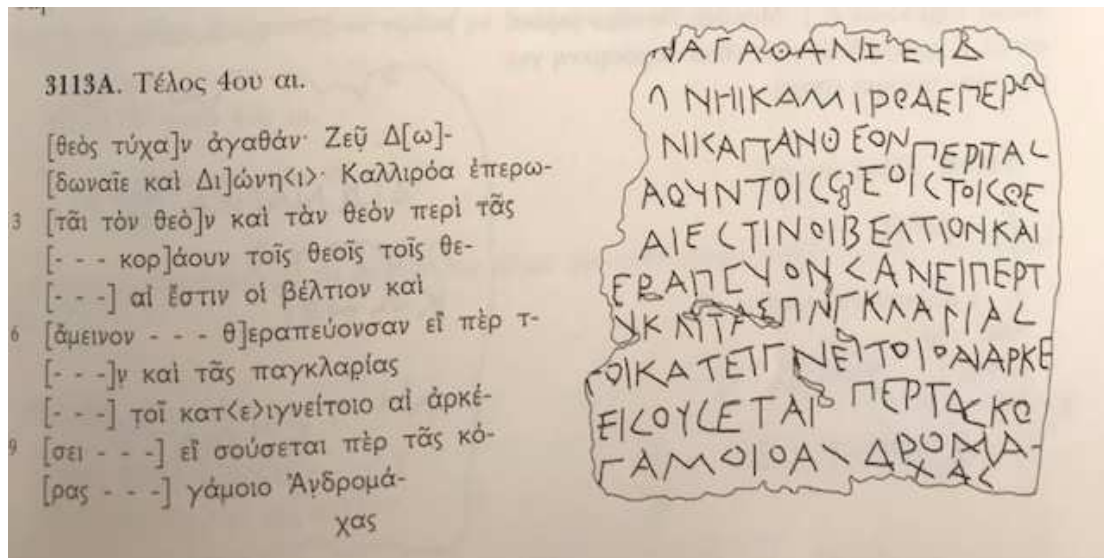 3113A. Τέλος 4ου αι.
[θεὸς τύχα]ν ἀγαθάν· Ζεῦ Δ[ω]-
[δωναῖε καὶ Δι]ώνη<ι>· Καλλιρόα ἐπερω-
3 [τᾶι τὸν θεὸ]ν καὶ τὰν θεὸν περὶ τᾶς
[- - - κορ]άουν τοῖς θεοῖς τοῖς θε-
[- - -] αἰ ἔστιν οἱ βέλτιον καὶ
6 [ἄμεινον - - - θ]εραπεύονσαν εἴ πὲρ τ-
[- - -]ν καὶ τᾶς παγκλαρίας
[- - -] τοῖ κατ<ε>ιγνείτοιο αἰ ἀρκέ-
9 [σει - - -] εἴ σούσεται πὲρ τᾶς κό-
[ρας - - -] γάμοιο Ἀνδρομά-
χας
ΝΑΓΑΘΑΝΙΕΥΔ
ΝΗΙΚΑΜΙΡΟΑΕΠΕΡΩ
ΝΙΚΑΠΑΝΘΕΟΝΠΕΡΙΤΑC
ΑΟΥΝΤΟΙCΘΕΟΙCΤΟΙCΘΕ
ΑΙΕCΤΙΝΟΙΒΕΛΤΙΟΝΚΑΙ
ΕΡΑΠΕΥΟΝCΑΝΕΙΠΕΡΤ
ΓΚΛΑΡΙΑC
ΟΙΚΑΤΕΙΓΝΕΙΤΟΙΟΑΙΑΡΚΕ
ΕΙCΟΥCΕΤΑΙ ΠΕΡΤΑCΚΟ
ΓΑΜΟΙΟΑΝΔΡΟΜΑ-
ΧΑC